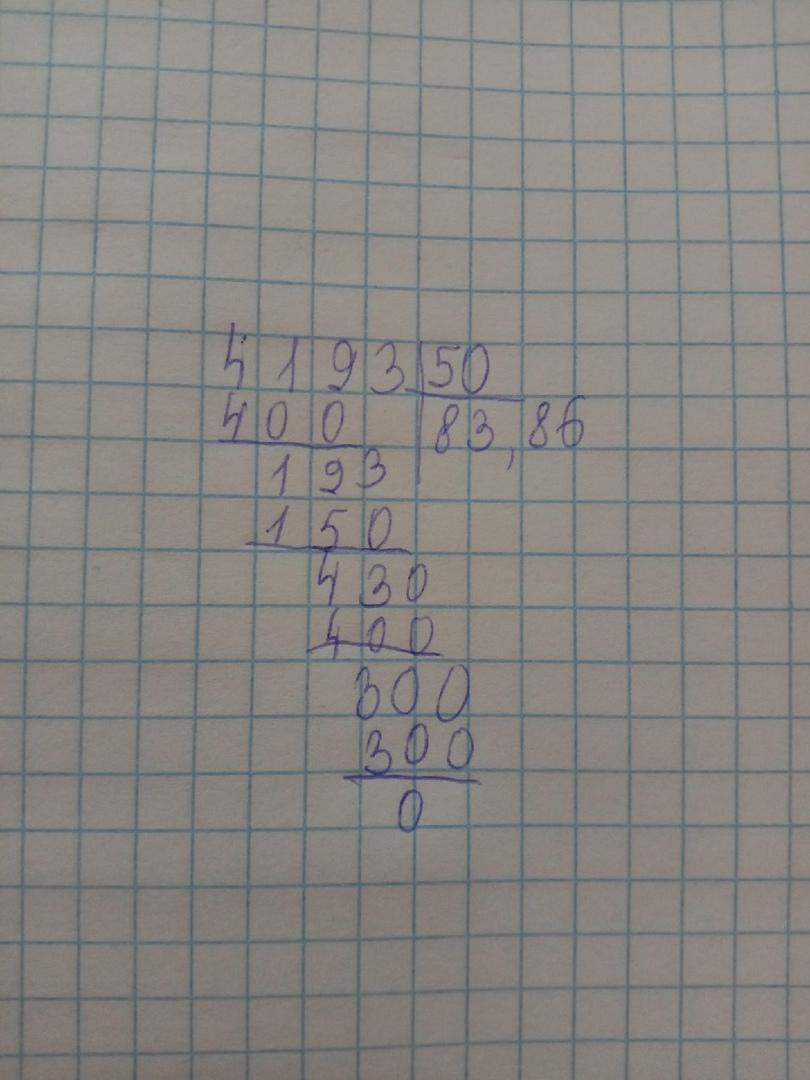 4193 50
400 83,86
193
150
430
400
300
300
0